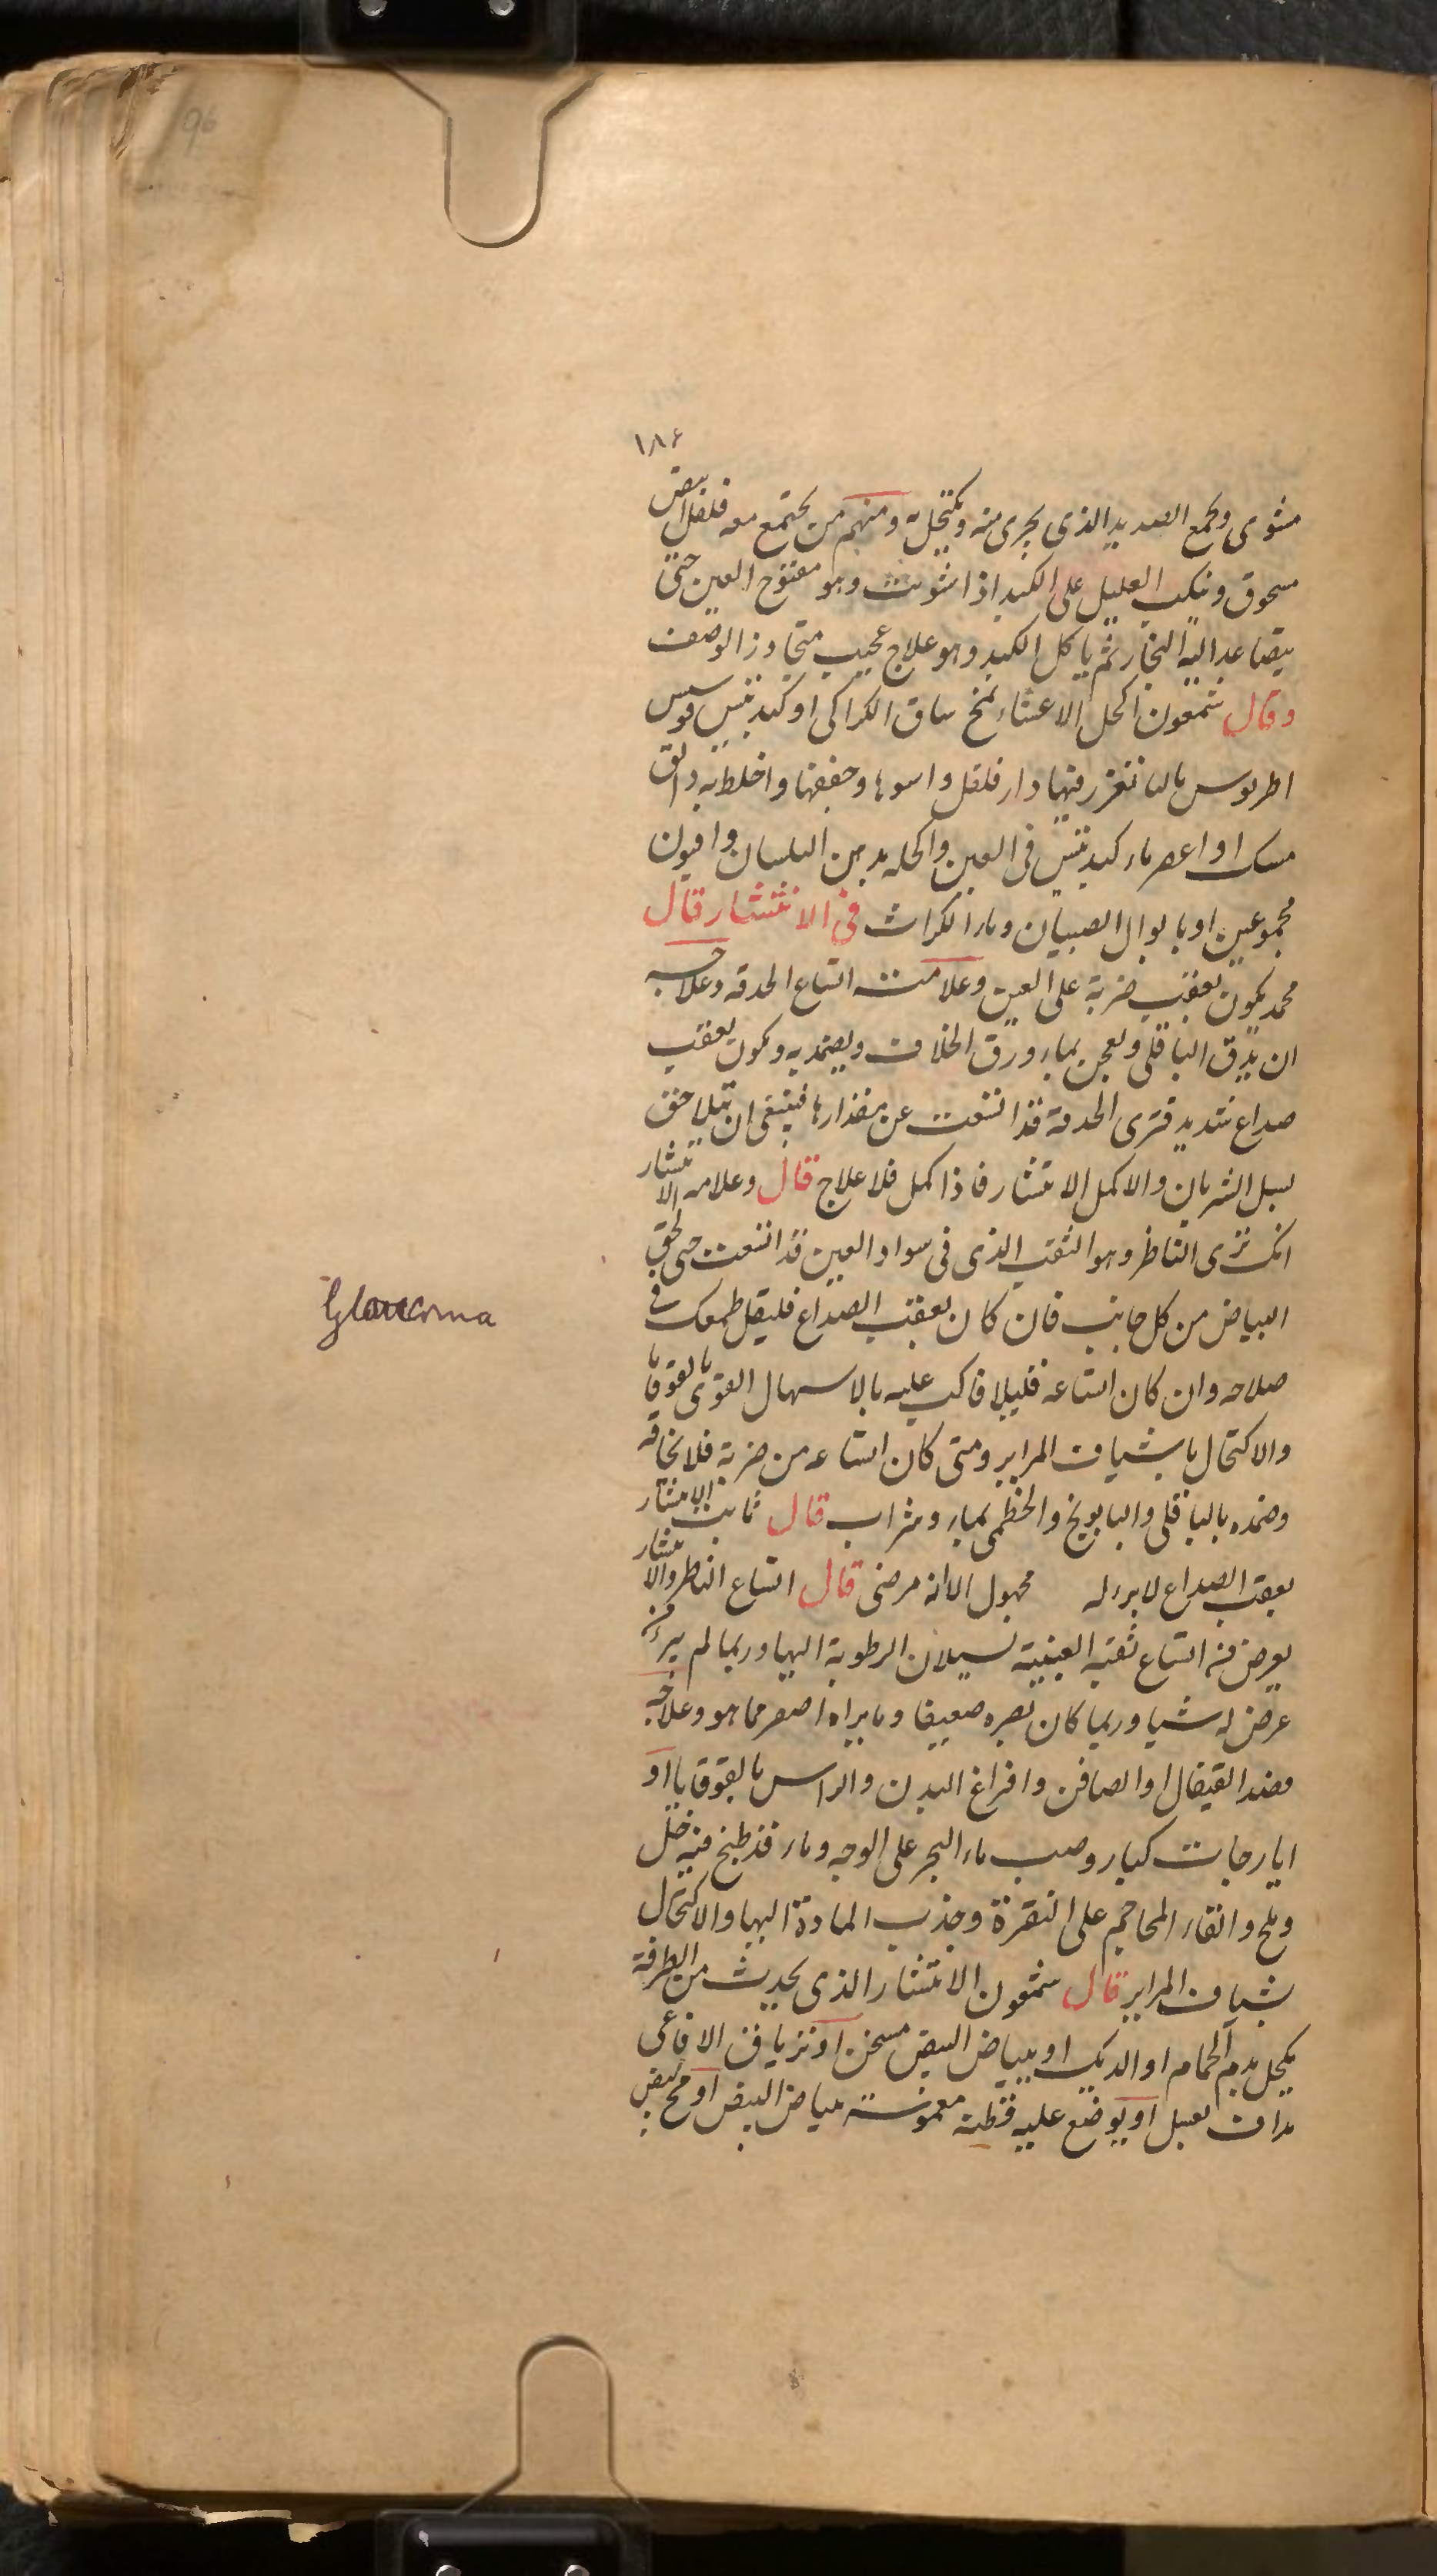 96
١٨٤
مشوى ويجمع الصديد الذى يجرى منه ويكتحل به ومنهم من يجتمع معه فلفل ابيض
مسحوق وينكب العليل على الكبد اذا شويت وهو مفتوح العين حتى
يتصاعد اليه البخار ثم ياكل الكبد وهو علاج عجيب متجاوز الوصف
وقال شمعون اكحل الاعشاء بمخ ساق الكراكى او كبد تيس
فيها دار فلفل واسوها وجففها واخلط به دانق
مسك او اعصر ماء كبد تيس فى العين واكحله بدهن البلسان وافيون
مجموعين او بابوال الصبيان وماء الكراث فى الانتشار قال
محمد يكون بعقب ضربة على العين وعلامته اتساع الحدقه وعلاجه
ان يدق الباقلى ويعجن بماء ورق الخلاف ويضمد به ويكون بعقب
صداع شديد فترى الحدقة قد اتسعت عن مقدارها فينبغى ان يتلاحق
بسل الشريان والا كمل الانتشار فاذا كمل فلا علاج قال وعلامه الانتشار
انك ترى الناظر وهو الثقب الذى فى سواد العين قد اتسعت حتى لحق
البياض من كل جانب فان كان بعقب الصداع فليقل طمعك فى
صلاحه وان كان اتساعه قليلا فاكب عليه بالاسهال القوى بالقوقايا
والاكتحال باشياف المراير ومتى كان اتساعه من ضربة فلا تخافه
وضمده بالباقلى والبابونج والخطمى بماء وشراب قال ثابت الانتشار
بعقب الصداع لا برء له مجهول الا انه مرضى قال اتساع الناظر والانتشار
يعرض فيه اتساع ثقبة العينية لسيلان الرطوبة اليها وربما لم ير من
عرض له شيا وربما كان بصره ضعيفا وما يراه اصغر مما هو وعلاجه
فصد القيفال او الصافن وافراغ البدن والراس بالقوقايا او
ايارجات كبار وصب ماء البحر على الوجه وماء قد طبخ فيه خل
وملح والقاء المحاجم على النقرة وجذب المادة اليها والاكتحال
شياف المراير قال شمعون الانتشار الذى يحدث من الطرفة
يكحل بدم الحمام او الديك او ببياض البيض مسخن او ترياق الافاعى
مداف بعسل او يوضع عليه قطنه مغموسة ببياض البيض او مح بيض
Glaucoma